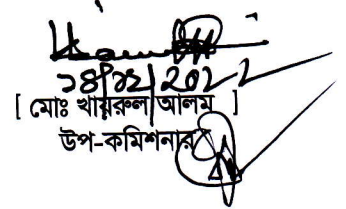 ১৪/১২/২০২২
[ মোঃ খায়রুল আলম ]
উপ-কমিশনার